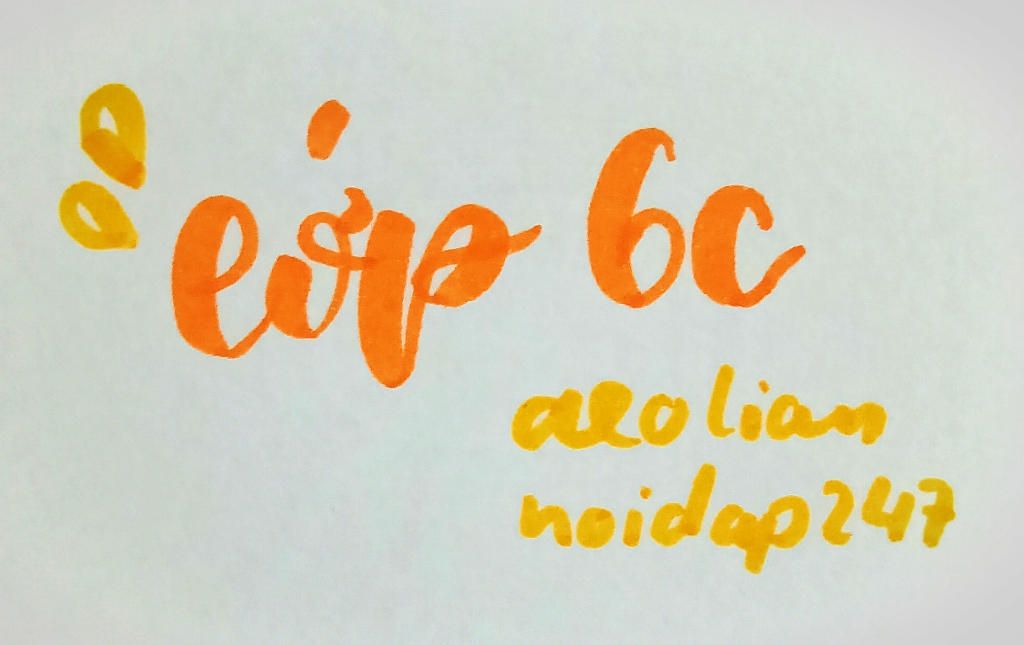 lớp 6c
aeolian
hoidap247